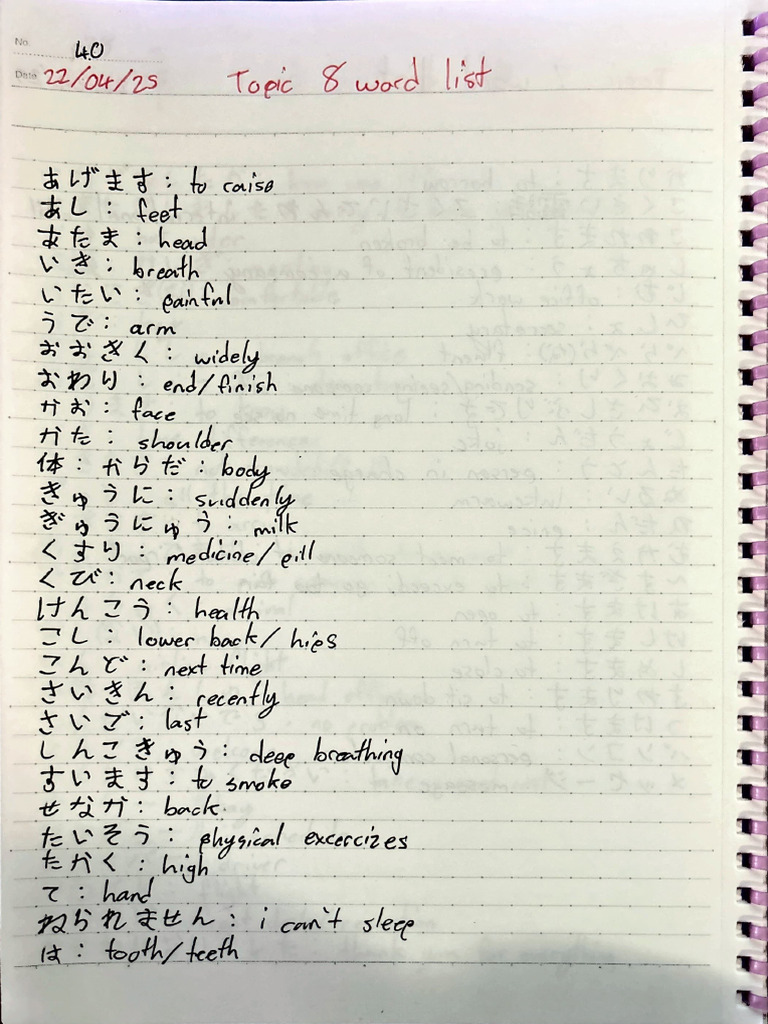 No. 40
Date 22/04/25 Topic 8 word list
あげます : to raise
あし : feet
あたま : head
いき : breath
いたい : painful
うで : arm
おおきく : widely
おわり : end/finish
かお : face
かた : shoulder
体 : からだ : body
きゅうに : suddenly
ぎゅうにゅう : milk
くすり : medicine/pill
くび : neck
けんこう : health
こし : lower back/hips
こんど : next time
さいきん : recently
さいご : last
しんこきゅう : deep breathing
すいます : to smoke
せなか : back
たいそう : physical excercizes
たかく : high
て : hand
ねられません : i can't sleep
は : tooth/teeth